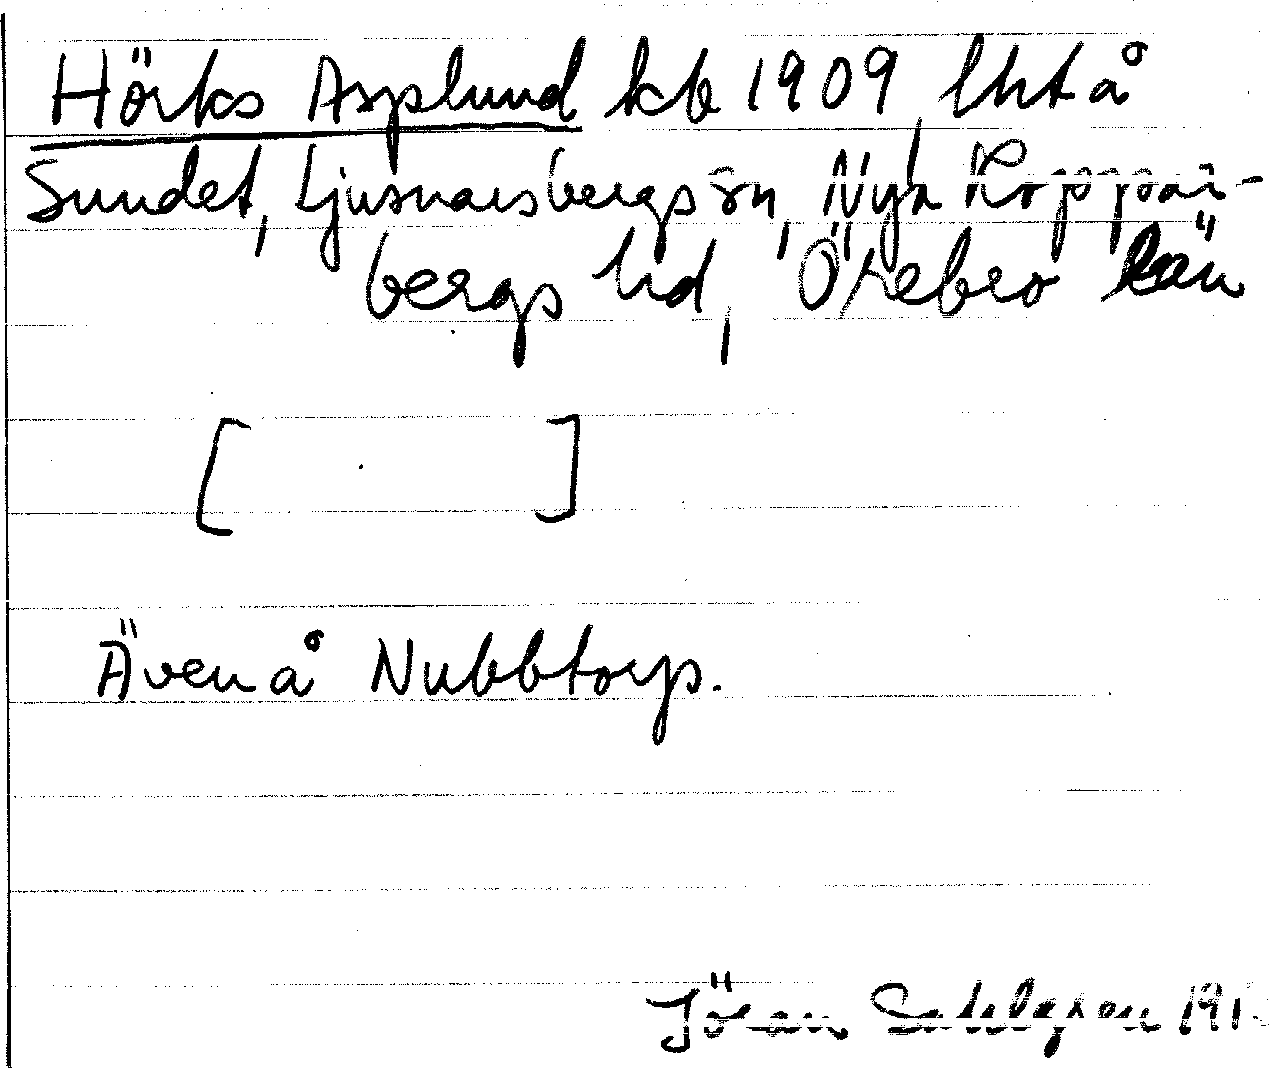 Hörks Asplund kb 1909, lht å
Sundet, Ljusnarsbergs sn, Nya Koppar-
bergs hd, Örebro län
[ ]
Även å Nubbtorp.
Jöran Sahlgren